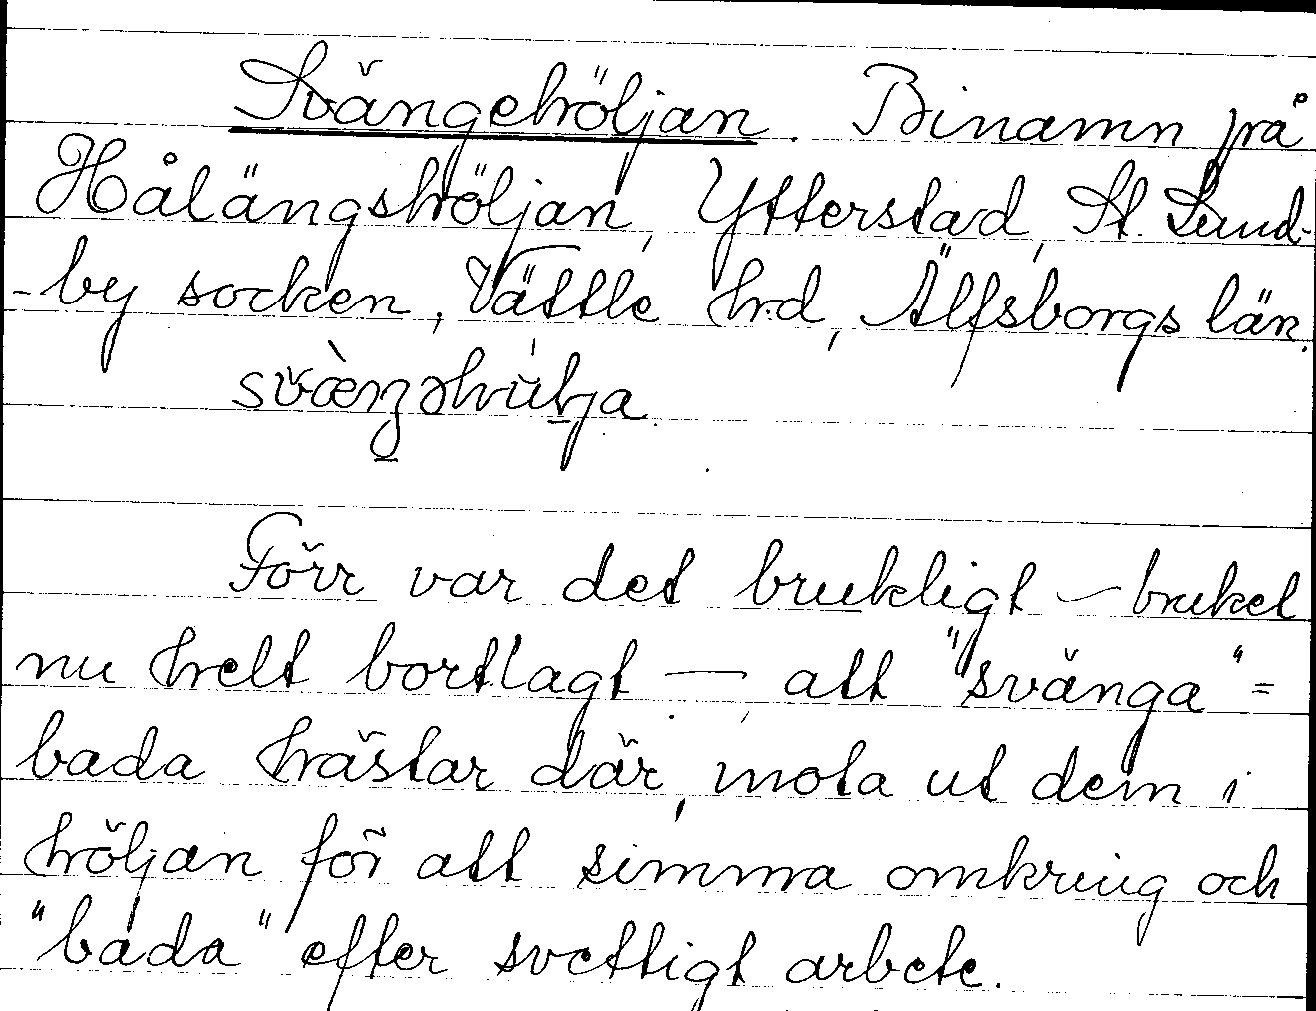 Svängehöljan. Binamn på
Hålängshöljan, Ytterstad, St. Lund-
-by socken, Vättle hrd, Älfsborgs län.
Förr var det brukligt – bruket
nu helt bortlagt – att "svänga" =
bada hästar där, mota ut dem i
höljan för att simma omkring och
"bada" efter svettigt arbete.